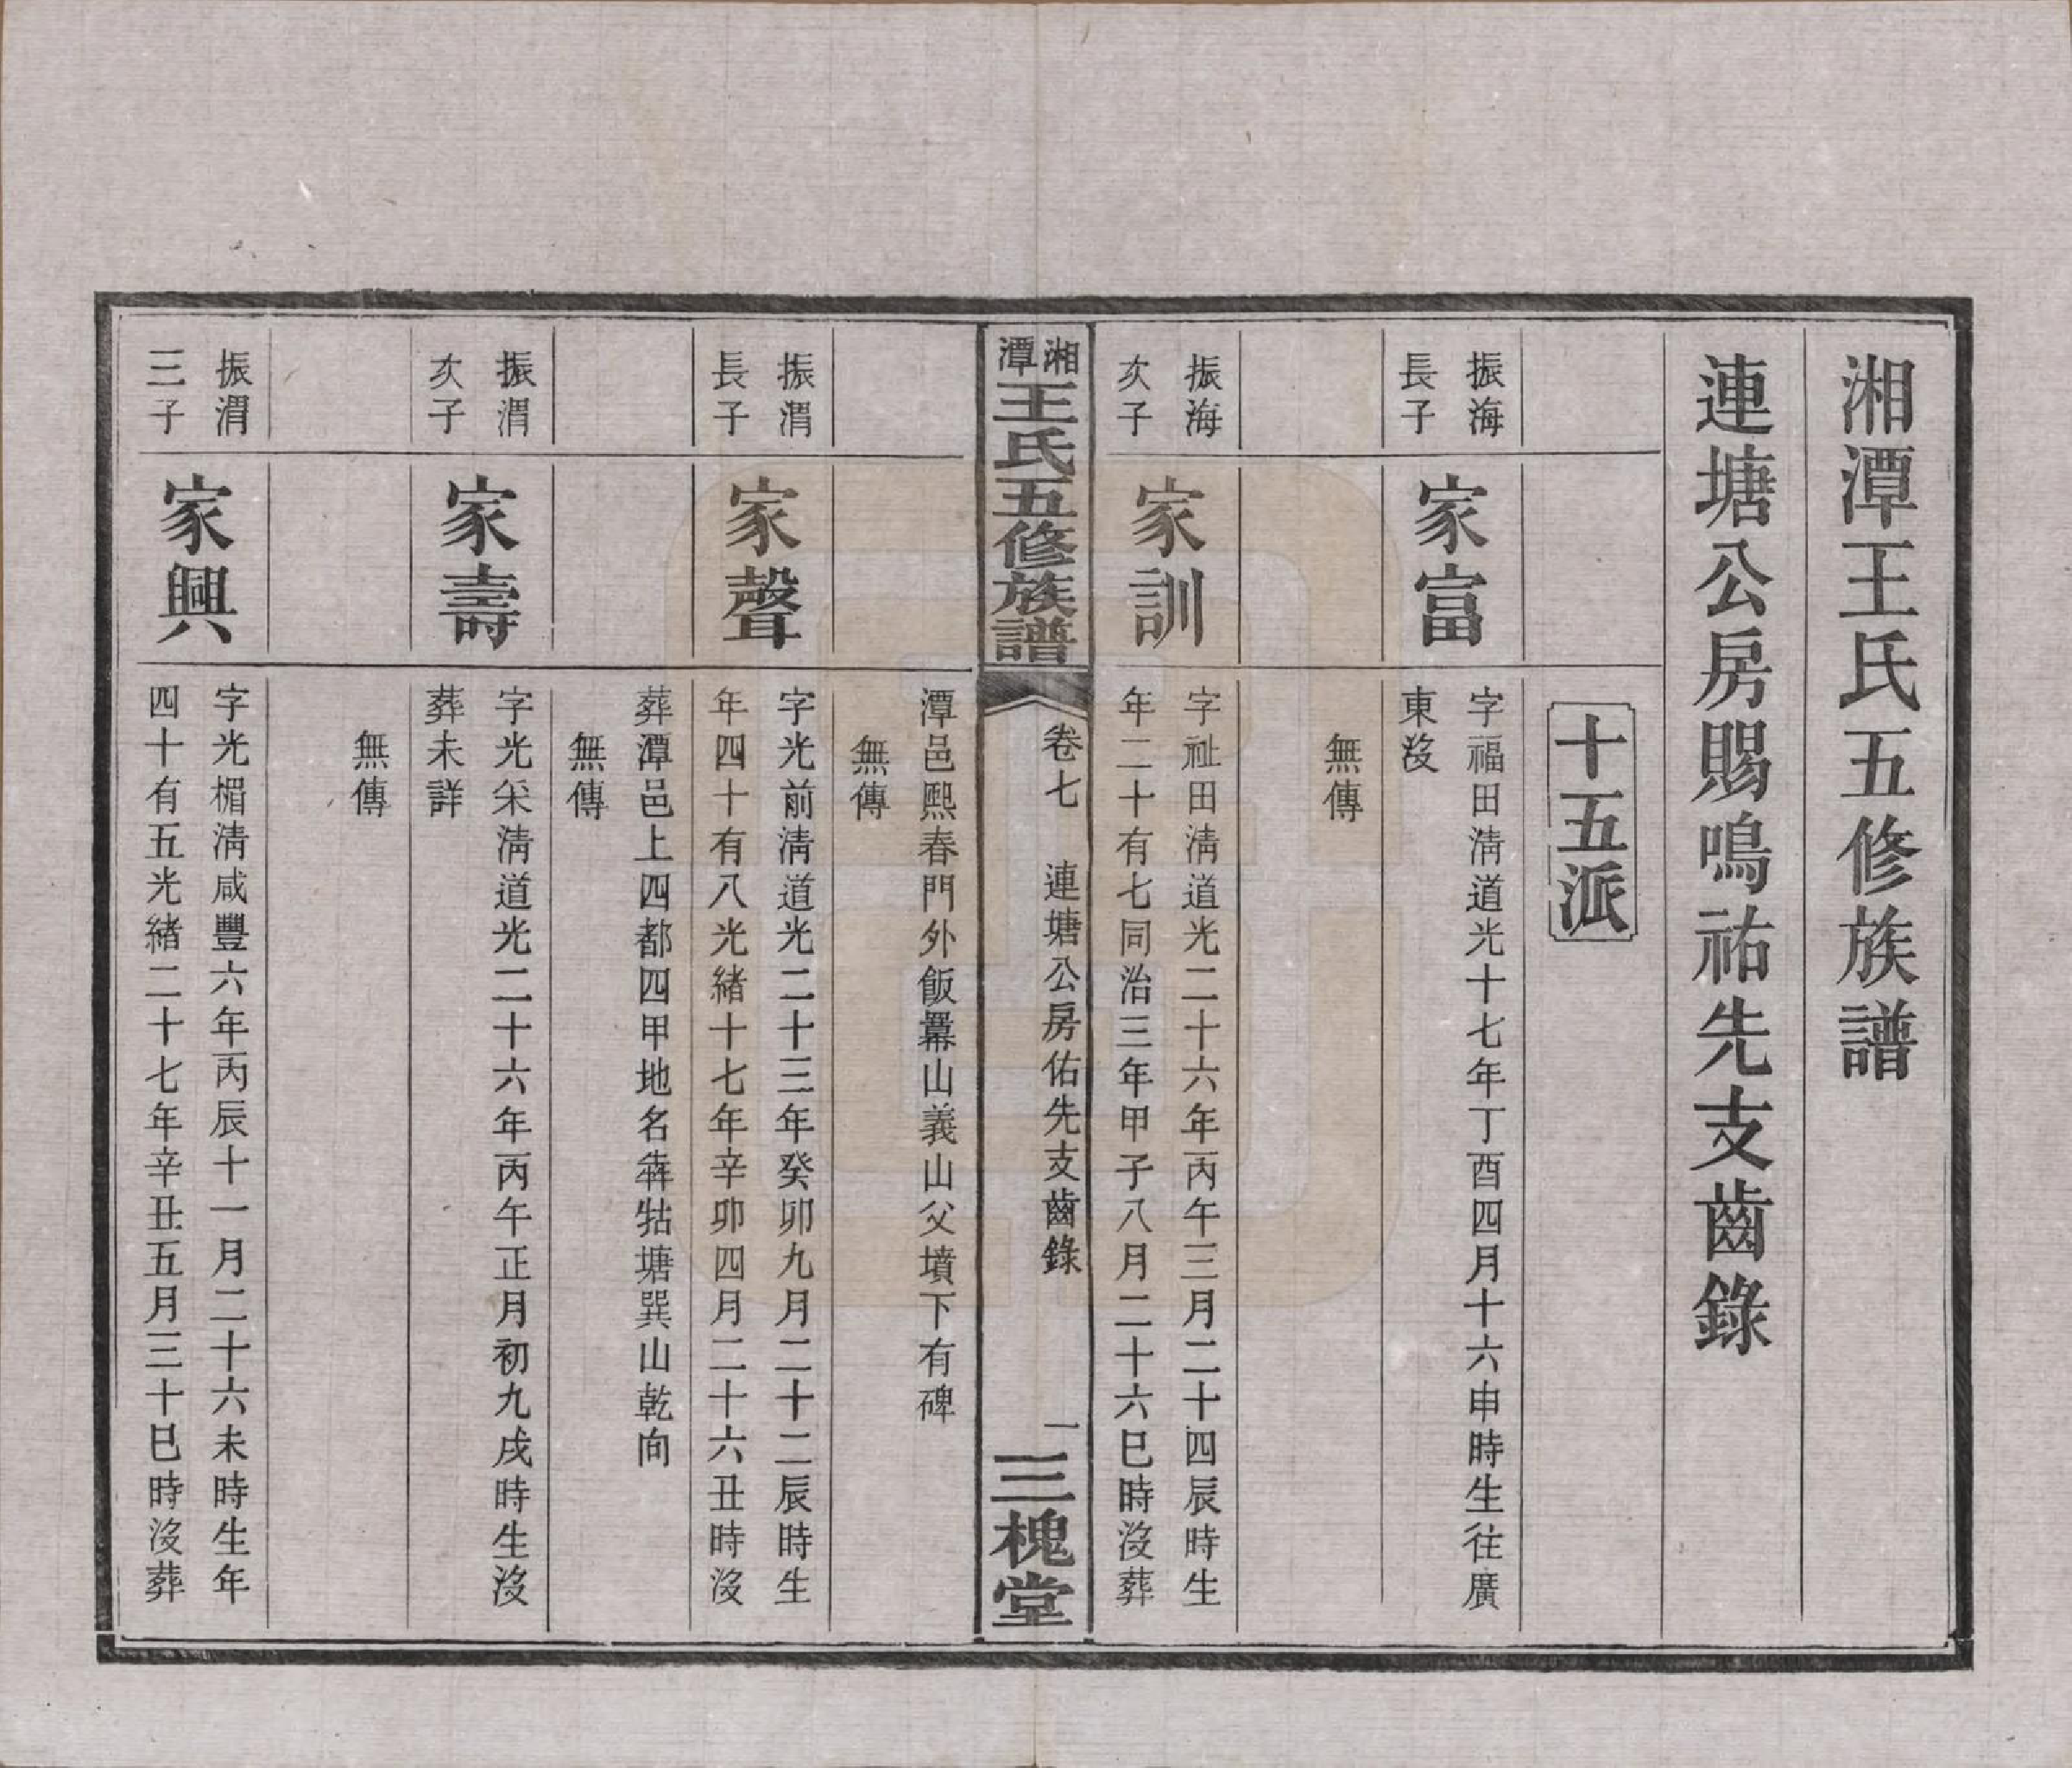 湘潭王氏五修族譜
連塘公房賜鳴祐先支齒錄
十五派
振海
長子
家富
字福田清道光十七年丁酉四月十六申時生往廣
東沒
無傳
振海
次子
家訓
字祉田清道光二十六年丙午三月二十四辰時生
年二十有七同治三年甲子八月二十六巳時沒葬
湘潭王氏五修族譜
卷七 連塘公房佑先支齒錄
一
三槐堂
潭邑熙春門外飯羃山義山父墳下有碑
無傳
振渭
長子
家聲
字光前清道光二十三年癸卯九月二十二辰時生
年四十有八光緒十七年辛卯四月二十六丑時沒
葬潭邑上四都四甲地名犇牯塘巽山乾向
無傳
振渭
次子
家壽
字光采清道光二十六年丙午正月初九戌時生沒
葬未詳
無傳
振渭
三子
家興
字光楣清咸豐六年丙辰十一月二十六未時生年
四十有五光緒二十七年辛丑五月三十巳時沒葬